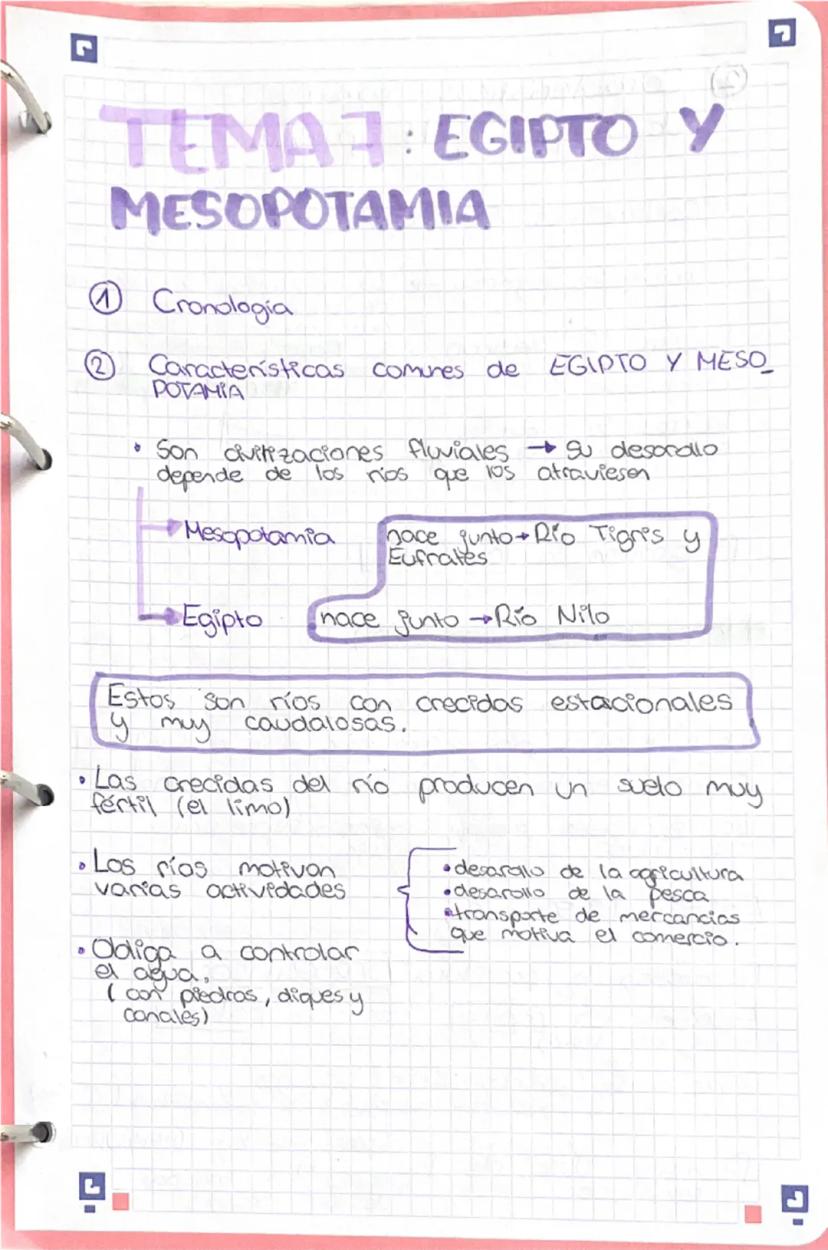 TEMA 7: EGIPTO Y
MESOPOTAMIA
① Cronología
② Características comunes de EGIPTO Y MESO_
POTAMIA
• Son civilizaciones fluviales → Su desarollo
depende de los ríos que los atraviesen
→ Mesopotamia
nace junto → Río Tigris y
Eufrates
→ Egipto
nace junto → Río Nilo
Estos son ríos con crecidas estacionales
y muy caudalosas.
• Las crecidas del río producen un suelo muy
fértil (el limo)
• Los ríos motivan
varias actividades
• desarollo de la agricultura
• desarollo de la pesca
• transporte de mercancias
que motiva el comercio.
• Obliga a controlar
el agua.
( con piedras, diques y
canales)